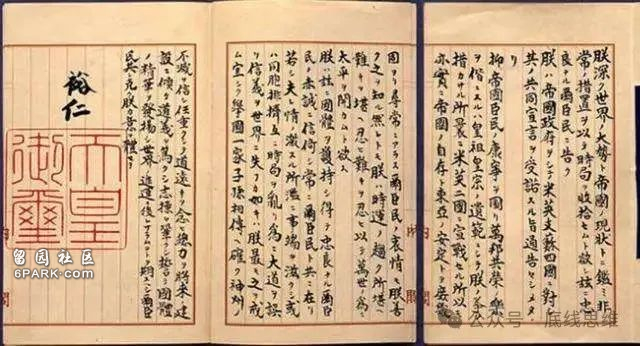 朕深ク世界ノ大勢ト帝國ノ現狀トニ鑑ミ非
常ノ措置ヲ以テ時局ヲ收拾セムト欲シ茲ニ忠
良ナル爾臣民ニ告ク
朕ハ帝國政府ヲシテ米英支蘇四國ニ對シ
其ノ共同宣言ヲ受諾スル旨通告セシメタリ
抑帝國臣民ノ康寧ヲ圖リ萬邦共榮ノ樂
ヲ偕ニスルハ皇祖皇宗ノ遺範ニシテ朕ノ拳
措カサル所曩ニ米英二國ニ宣戰セル所以
亦實ニ帝國ノ自存ト東亞ノ安定トヲ
固ヨリ尋常ニアラス爾臣民ノ衷情モ朕善
ク之ヲ知ル然レトモ朕ハ時運ノ趨ク所堪ヘ
難キヲ堪ヘ忍ヒ難キヲ忍ヒ以テ萬世ノ爲ニ
太平ヲ開カムト欲ス
朕ハ茲ニ國體ヲ護持シ得テ忠良ナル爾臣
民ノ赤誠ニ信倚シ常ニ爾臣民ト共ニ在リ
若シ夫レ情ノ激スル所濫ニ事端ヲ滋クシ或
ハ同胞排擠互ニ時局ヲ亂リ爲ニ大道ヲ誤
リ信義ヲ世界ニ失フカ如キハ朕最モ之ヲ戒
ム宜シク擧國一家子孫相傳ヘ確ク神州ノ
不滅ヲ信シ任重クシテ道遠キヲ念ヒ總力ヲ將來ノ建
設ニ傾ケ道義ヲ篤クシ志操ヲ鞏クシ誓テ國體
ノ精華ヲ發揚シ世界ノ進運ニ後レサラムコトヲ期スヘシ爾臣
民其レ克ク朕カ意ヲ體セヨ
裕仁
天皇
御璽
内閣
留园社区
6PARK.COM
公众号·底线思维